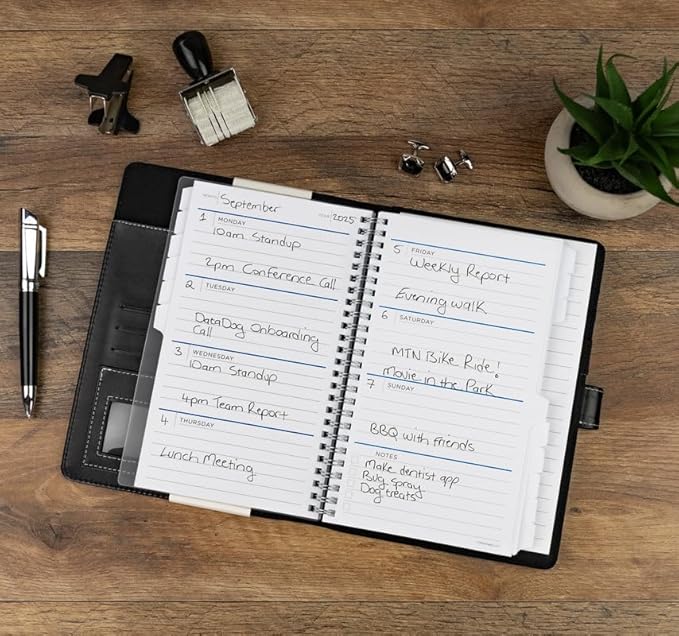 MONTH September YEAR 2025
1 MONDAY
10am Standup
2pm Conference Call
2 TUESDAY
DataDog Onboarding
Call
3 WEDNESDAY
10am Standup
4pm Team Report
4 THURSDAY
Lunch Meeting
5 FRIDAY
Weekly Report
Evening walk
6 SATURDAY
MTN Bike Ride!
Movie in the Park
7 SUNDAY
BBQ with friends
NOTES
Make dentist app
Bug spray
Dog treats